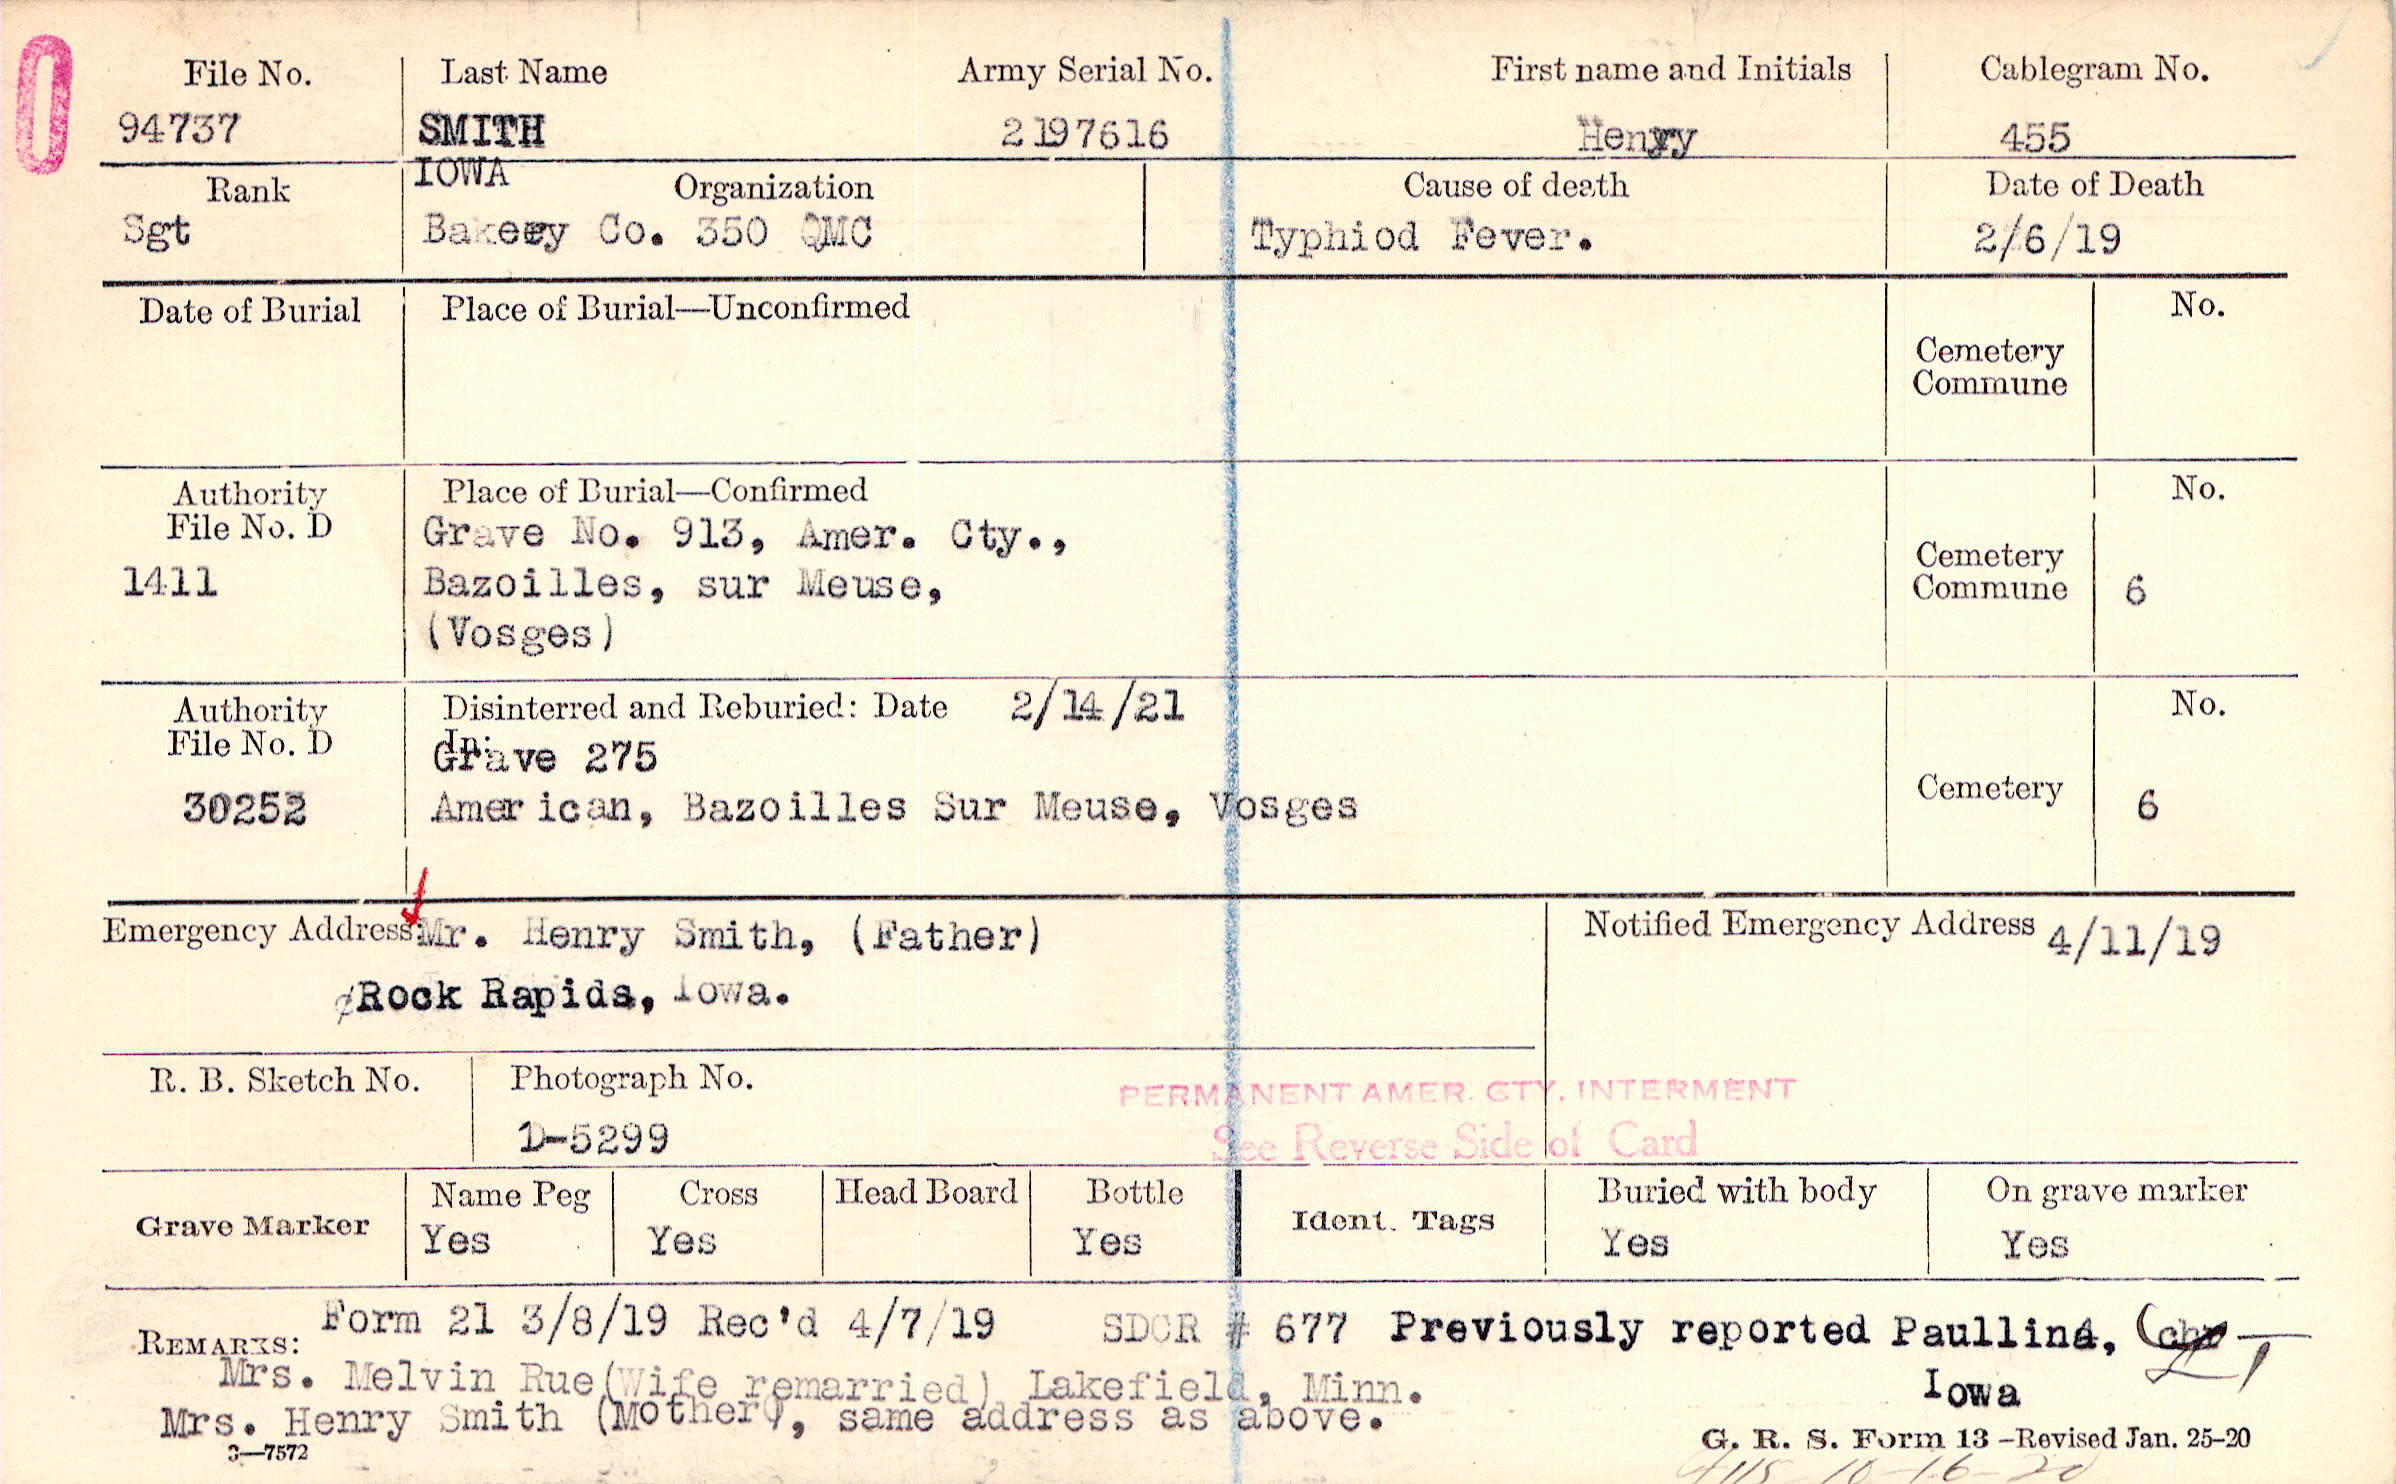 0
File No. Last Name Army Serial No. First name and Initials Cablegram No.
94737 SMITH 2197616 Henry 455
IOWA
Rank Organization Cause of death Date of Death
Sgt Bakery Co. 350 QMC Typhiod Fever. 2/6/19
Date of Burial Place of Burial—Unconfirmed No.
Cemetery
Commune
Authority Place of Burial—Confirmed No.
File No. D Grave No. 913, Amer. Cty.,
1411 Bazoilles, sur Meuse, Cemetery Commune 6
(Vosges)
Authority Disinterred and Reburied: Date 2/14/21 No.
File No. D In:
Grave 275
30252 American, Bazoilles Sur Meuse, Vosges Cemetery 6
Emergency Address: Mr. Henry Smith, (Father) Notified Emergency Address 4/11/19
Rock Rapids, Iowa.
R. B. Sketch No. Photograph No.
PERMANENT AMER. CTY. INTERMENT
D-5299 See Reverse Side of Card
Grave Marker Name Peg Cross Head Board Bottle Ident. Tags Buried with body On grave marker
Yes Yes Yes Yes Yes
REMARKS: Form 21 3/8/19 Rec'd 4/7/19 SDCR # 677 Previously reported Paullina,
Iowa
Mrs. Melvin Rue (Wife remarried) Lakefield, Minn.
Mrs. Henry Smith (Mother), same address as above.
3—7572 G. R. S. Form 13 —Revised Jan. 25-20